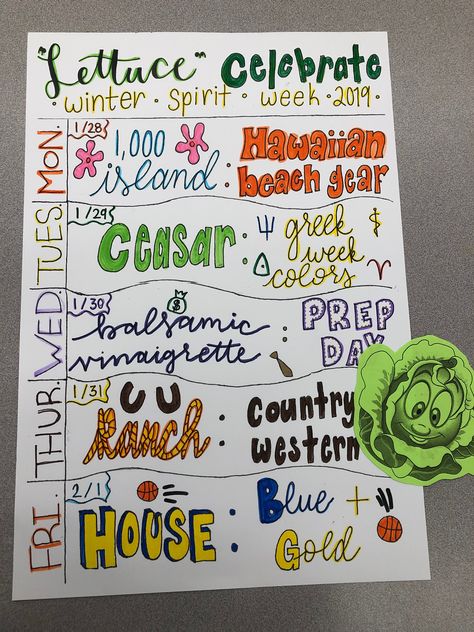 "Lettuce" Celebrate
· winter · spirit · week · 2019 ·
MON.
1/28
1,000 island : Hawaiian beach gear
TUES
1/29
Ceasar : greek week colors
WED
1/30
balsamic vinaigrette : PREP DAY
THUR.
1/31
Ranch : country western
FRI.
2/1
HOUSE : Blue + Gold